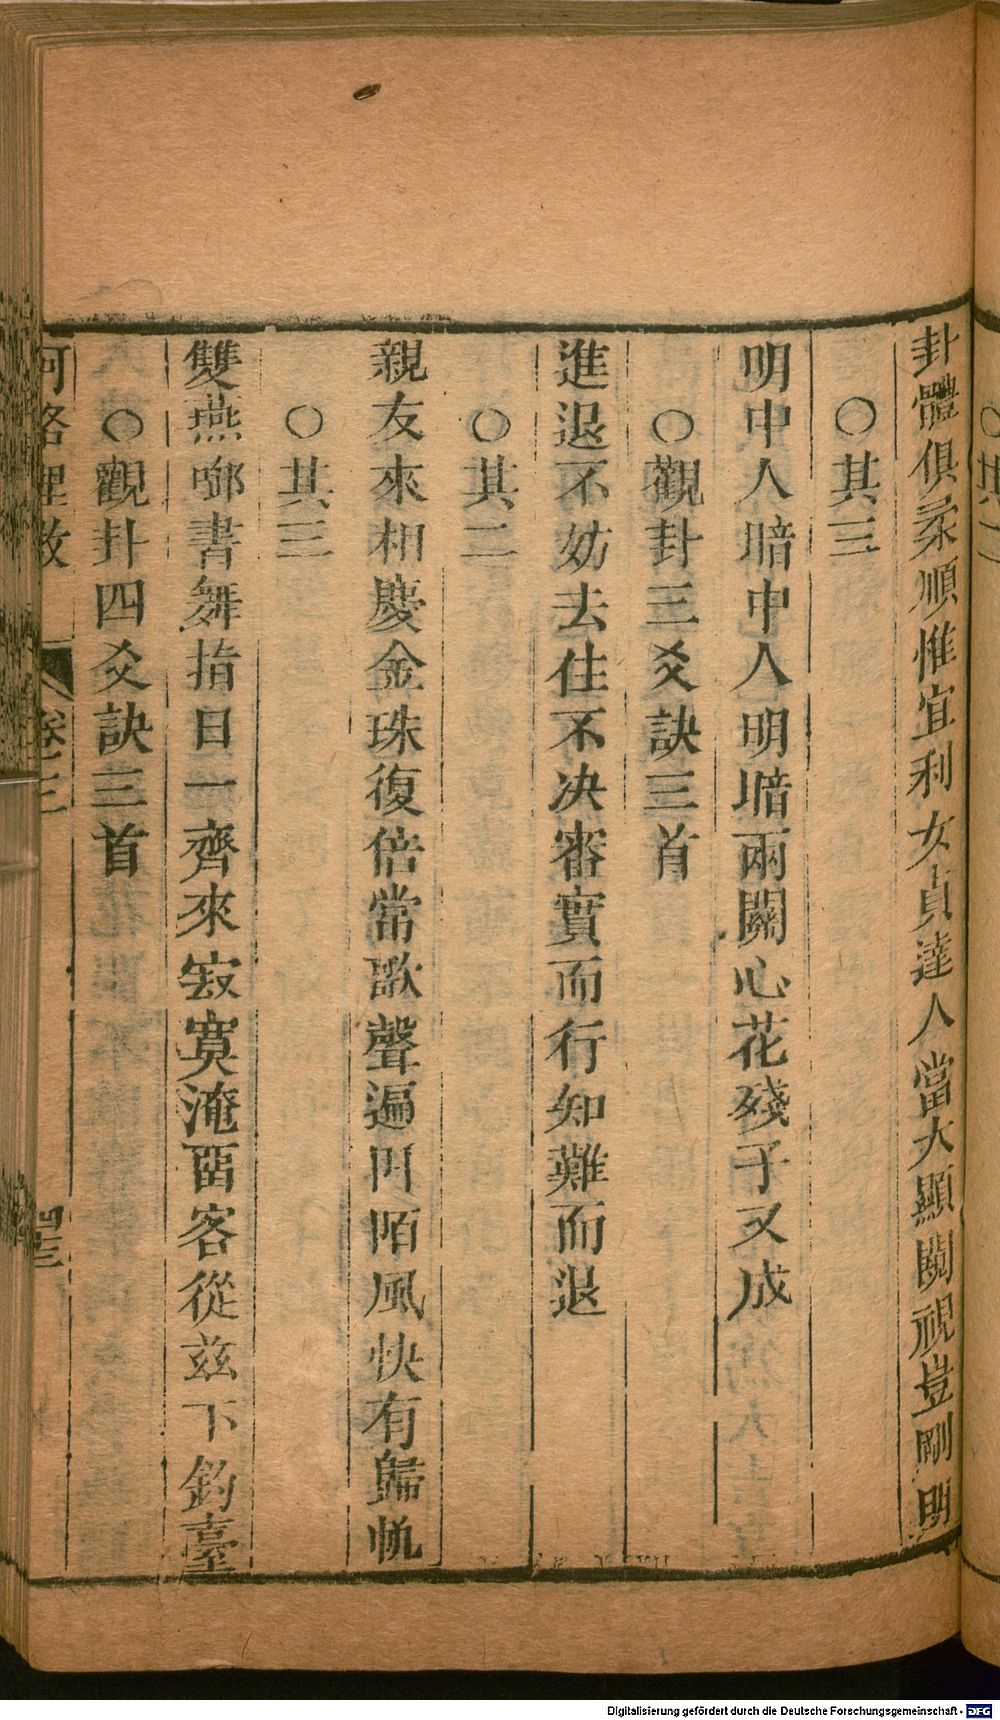 其二
卦體俱柔順惟宜利女貞達人當大顯闚視豈剛明
○其三
明中人暗中人明暗兩關心花殘子又成
○觀卦三爻訣三首
進退不妨去住不决審實而行知難而退
○其二
親友來相慶金珠復倍常歌聲遍阡陌風快有歸帆
○其三
雙燕啣書舞指日一齊來寂寞淹畱客從兹下釣臺
○觀卦四爻訣三首
河洛理數 卷三
Digitalisierung gefördert durch die Deutsche Forschungsgemeinschaft - DFG